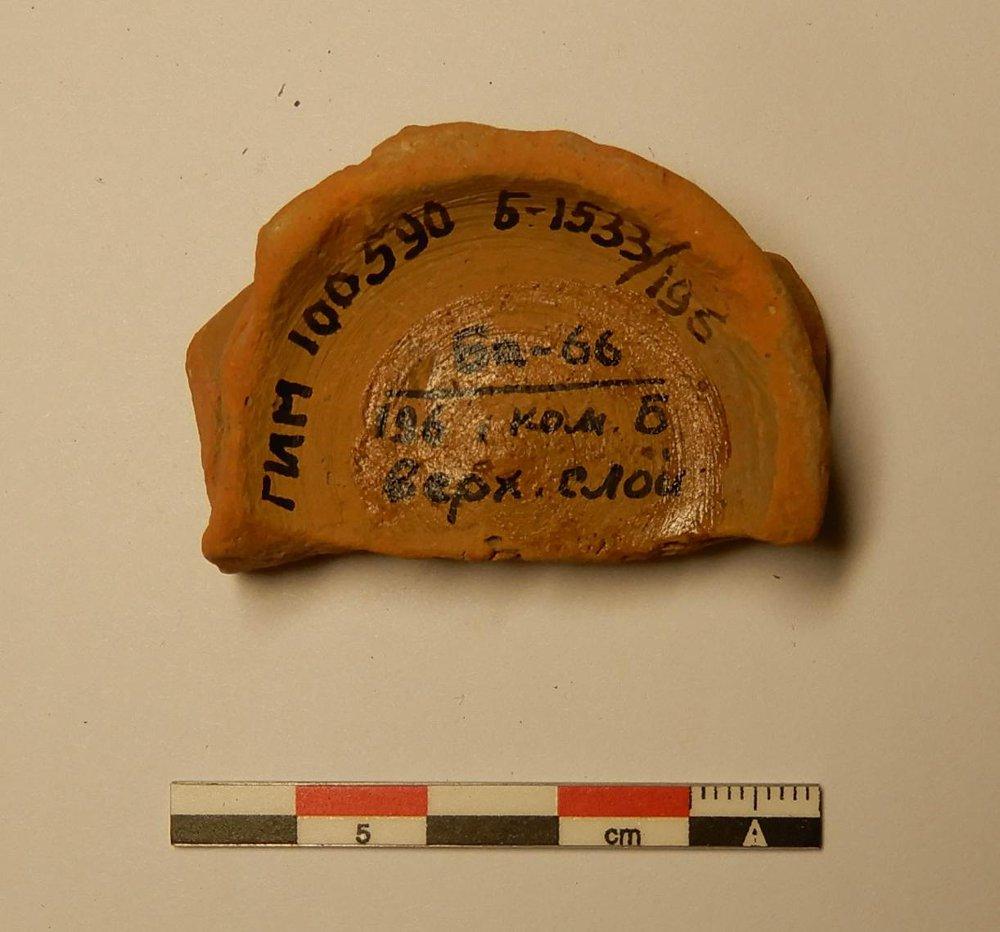 ГИМ 100590 Б-1533/196
Бт-66
196, ком. Б
верх. слой
5 cm A